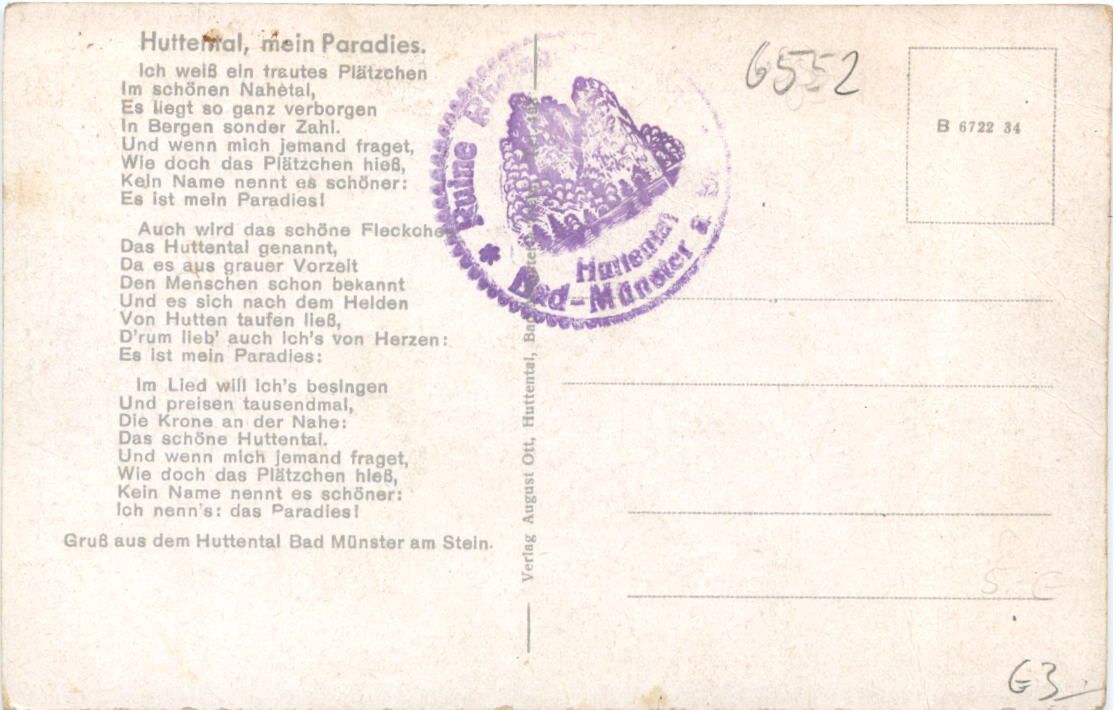 Huttental, mein Paradies.
Ich weiß ein trautes Plätzchen
Im schönen Nahetal,
Es liegt so ganz verborgen
In Bergen sonder Zahl.
Und wenn mich jemand fraget,
Wie doch das Plätzchen hieß,
Kein Name nennt es schöner:
Es ist mein Paradies!
Auch wird das schöne Fleckche
Das Huttental genannt,
Da es aus grauer Vorzeit
Den Menschen schon bekannt
Und es sich nach dem Helden
Von Hutten taufen ließ,
D'rum lieb' auch ich's von Herzen:
Es ist mein Paradies:
Im Lied will ich's besingen
Und preisen tausendmal,
Die Krone an der Nahe:
Das schöne Huttental.
Und wenn mich jemand fraget,
Wie doch das Plätzchen hieß,
Kein Name nennt es schöner:
Ich nenn's: das Paradies!
Gruß aus dem Huttental Bad Münster am Stein.
Verlag August Ott, Huttental,
Ruine
Huttental
* Bad-Münster a.
6552
B 6722 34
G3